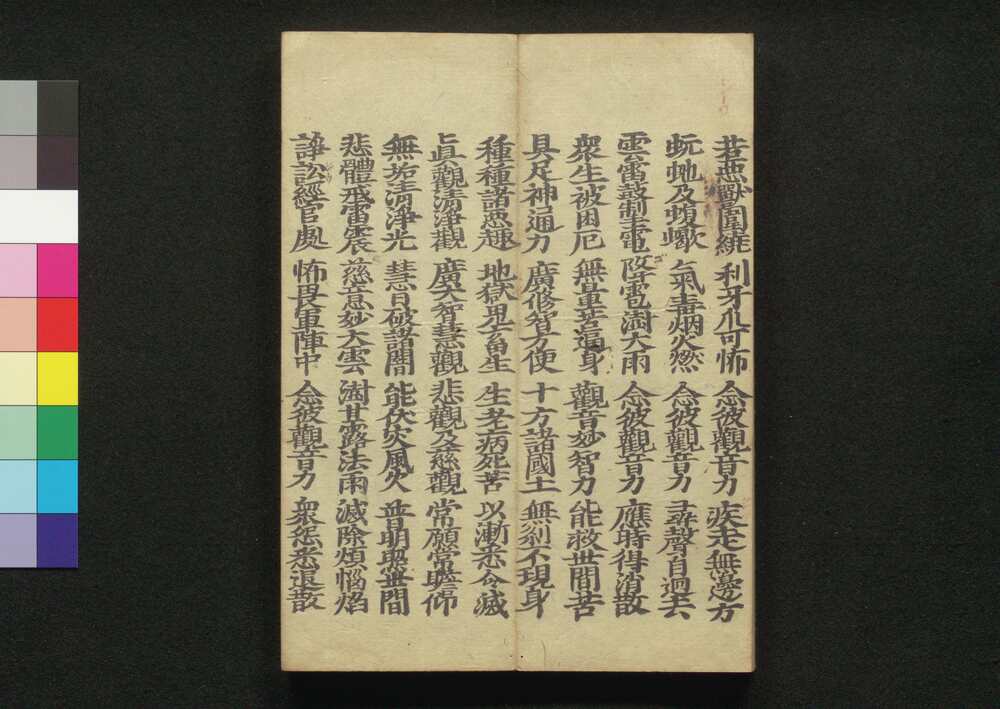 若惡獸圍繞 利牙爪可怖 念彼觀音力 疾走無邊方
蚖蛇及蝮蠍 氣毒烟火燃 念彼觀音力 尋聲自迴去
雲雷鼓掣電 降雹澍大雨 念彼觀音力 應時得消散
衆生被困厄 無量苦逼身 觀音妙智力 能救世間苦
具足神通力 廣修智方便 十方諸國土 無刹不現身
種種諸惡趣 地獄鬼畜生 生老病死苦 以漸悉令滅
眞觀清淨觀 廣大智慧觀 悲觀及慈觀 常願常瞻仰
無垢清淨光 慧日破諸闇 能伏災風火 普明照世間
悲體戒雷震 慈意妙大雲 澍甘露法雨 滅除煩惱焰
諍訟經官處 怖畏軍陣中 念彼觀音力 衆怨悉退散